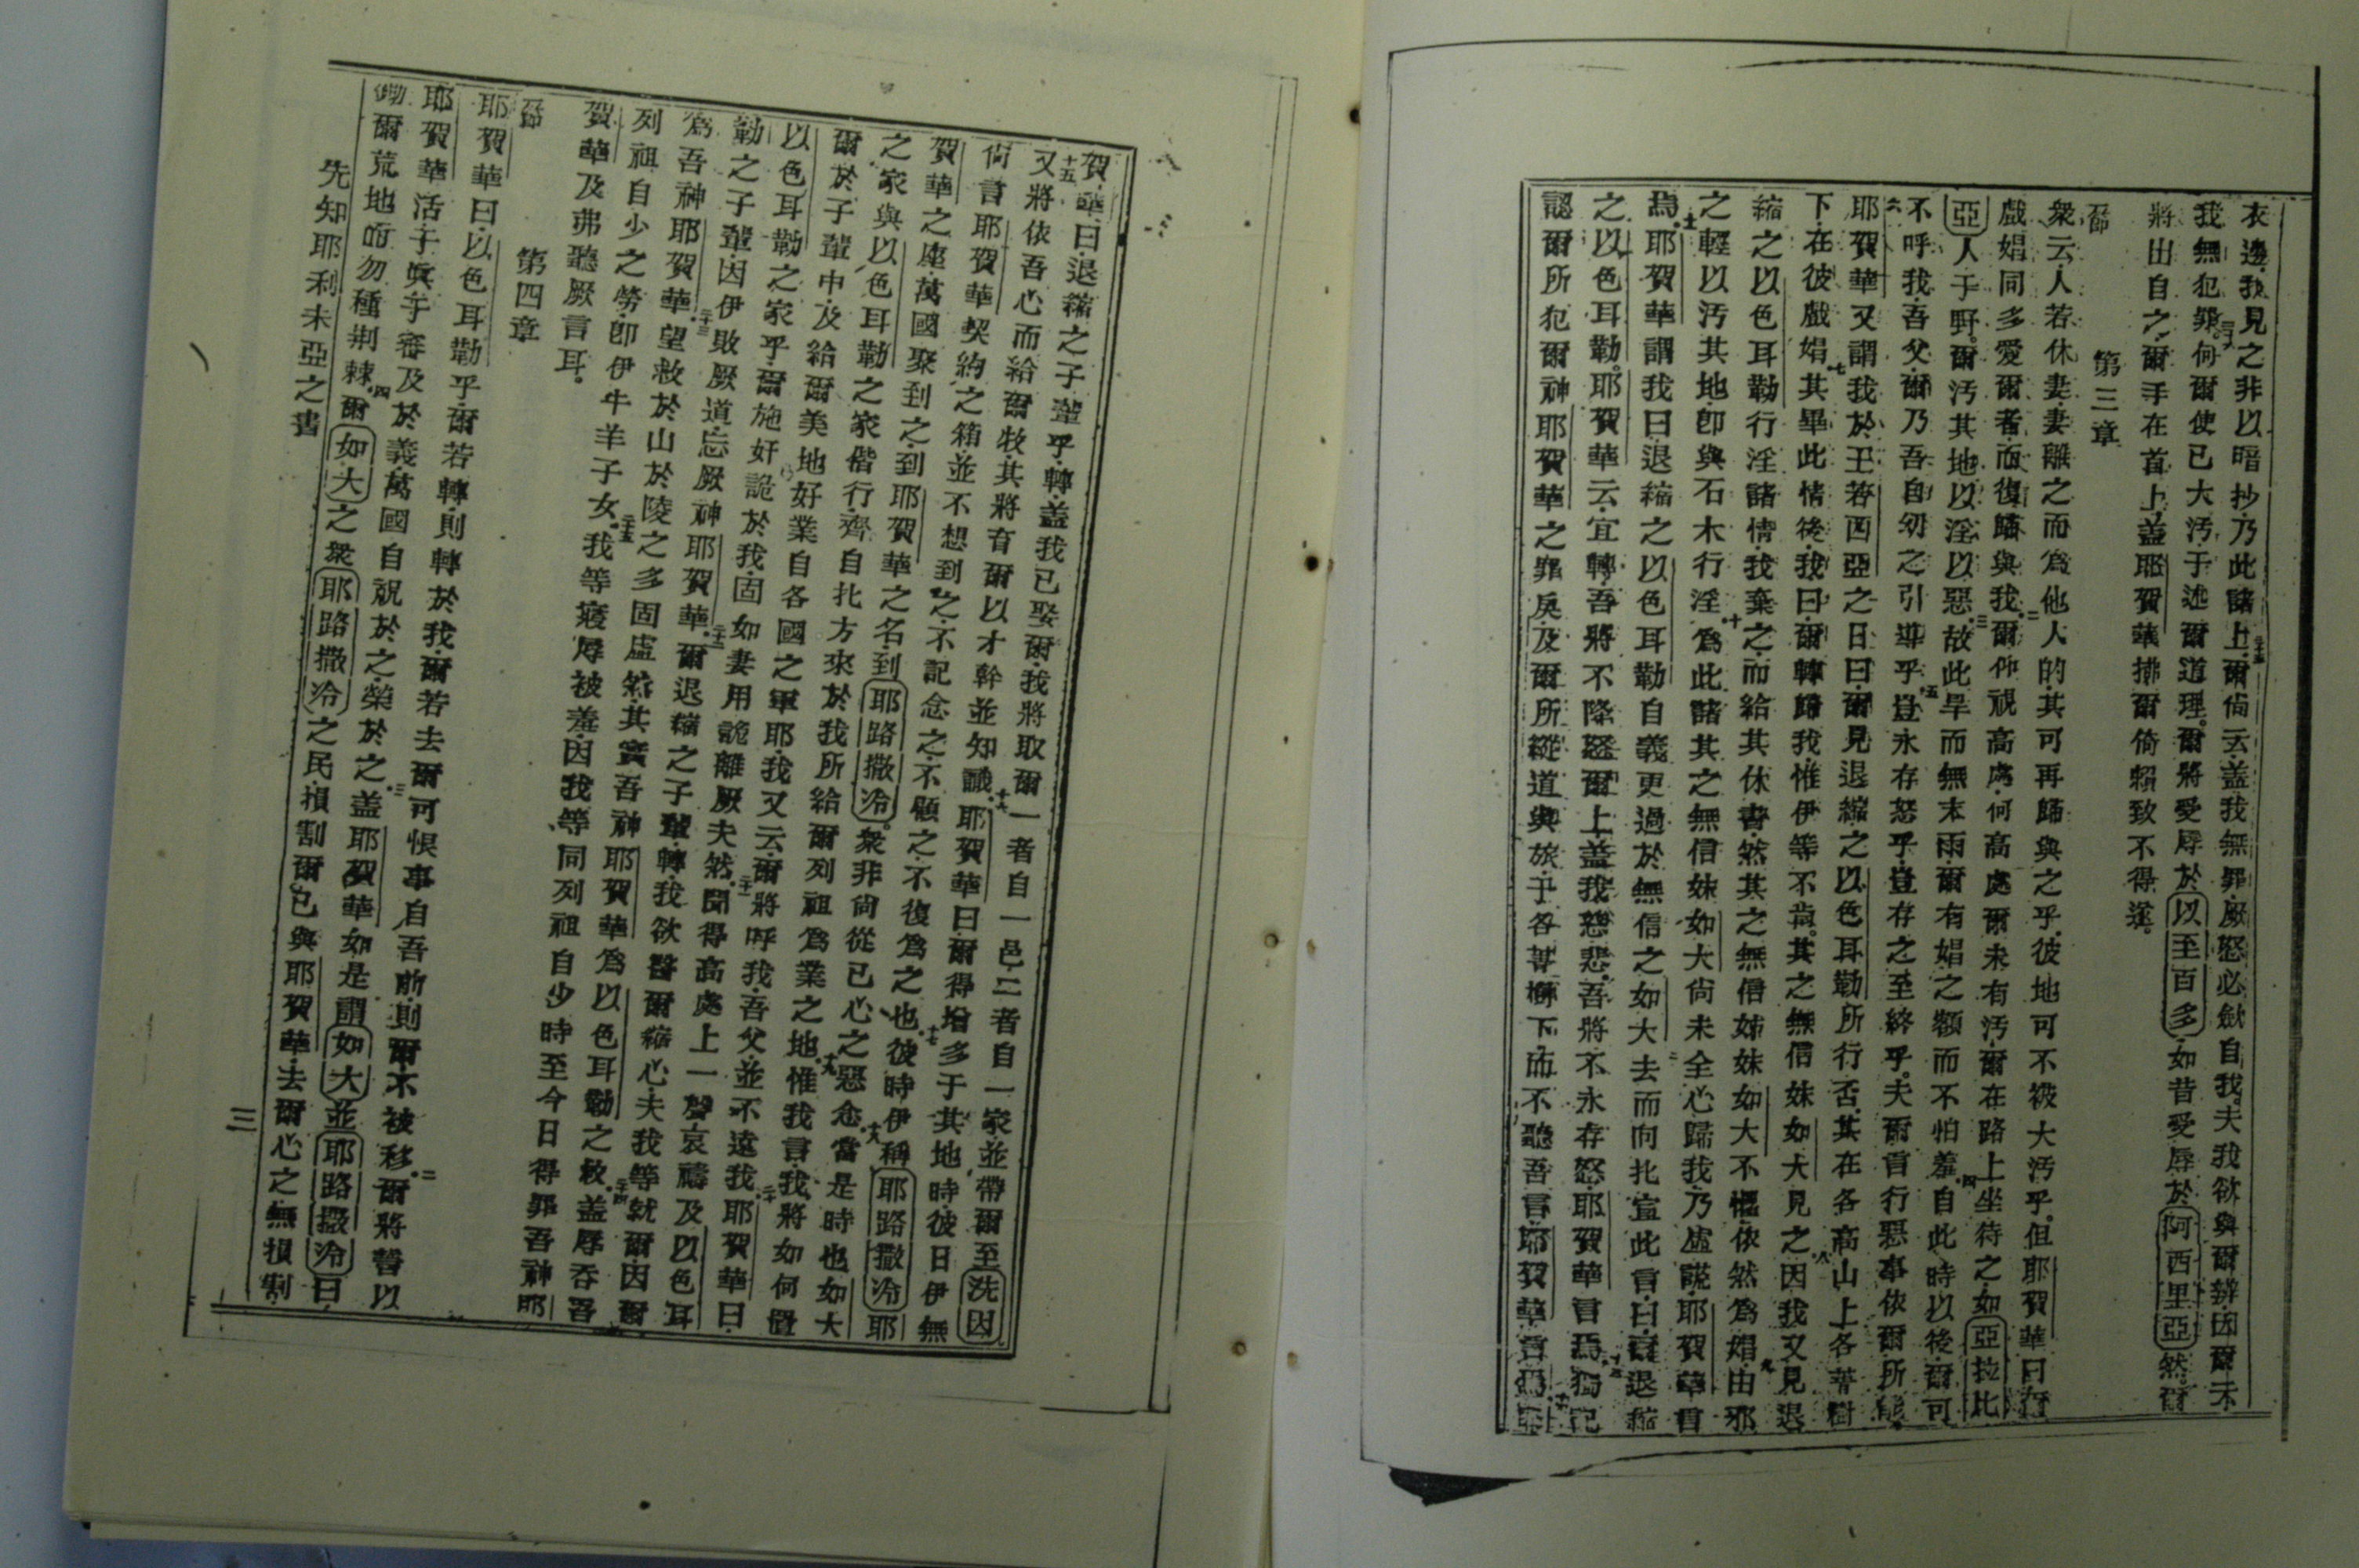 衣邊我見之非以暗抄乃此諸上三十五爾尙云盖我無罪厥怒必斂自我夫我欲與爾辦因爾未
我無犯罪三十六何爾使已大汚于述爾道理爾將愛辱於以至百多如昔受辱於阿西里亞然爾
將出自之爾手在首上盖耶賀華拂爾倚賴致不得遂
第三章
衆云人若休妻妻離之而爲他人的其可再歸與之乎彼地可不被大汚乎但耶賀華曰爾
戲娼同多愛爾者而復歸與我二爾仰視高處何高處爾未有汚爾在路上坐待之如亞拉比
亞人于野爾汚其地以淫以惡三故此旱而無末雨爾有娼之額而不怕羞四自此時以後爾可
不呼我吾父爾乃吾自幼之引導乎五豈永存怒乎豈存之至終乎夫爾言行惡事依爾所能
六耶賀華又謂我於王若西亞之日曰爾見退縮之以色耳勒所行否其在各高山上各菁樹
下在彼戲娼七其畢此情後我曰爾轉歸我惟伊等不肯其之無信妹如大見之八因我又見退
縮之以色耳勒行淫諸情我棄之而給其休書然其之無信姊妹如大不懼依然爲娼九由邪
之輕以汚其地卽與石木行淫十爲此諸其之無信妹如大尙未全心歸我乃虛謊耶賀華言
焉十一耶賀華謂我曰退縮之以色耳勒自義更過於無信之如大十二去而向北宣此言曰言退縮
之以色耳勒耶賀華云宜轉吾將不降怒爾上盖我慈悲吾將不永存怒耶賀華言焉十三獨記
認爾所犯爾神耶賀華之罪戾及爾所縱道與旅于各菁樹下而不聽吾言耶賀華言焉十四耶
賀華曰退縮之子輩乎轉盖我已娶爾我將取爾一者自一邑二者自一家並帶爾至洗因
十五又將依吾心而給爾牧其將育爾以才幹並知識十六耶賀華曰爾得增多于其地時彼日伊無
尙言耶賀華契約之箱並不想到之不記念之不顧之不復爲之也十七彼時伊稱耶路撒冷耶
賀華之座萬國聚到之到耶賀華之名到耶路撒冷衆非尙從已心之惡念十八當是時也如大
之家與以色耳勒之家偕行齊自北方來於我所給爾列祖爲業之地十九惟我言我將如何置
爾於子輩中及給爾美地好業自各國之軍耶我又云爾將呼我吾父並不遠我二十耶賀華曰
以色耳勒之家乎爾施奸詭於我固如妻用詭離厥夫然二十一聞得高處上一聲哀禱及以色耳
勒之子輩因伊敗厥道忘厥神耶賀華二十二爾退縮之子輩轉我欲醫爾縮心夫我等就爾因爾
爲吾神耶賀華二十三望救於山於陵之多固虛然其實吾神耶賀華爲以色耳勒之救二十四盖辱吞吾
列祖自少之勞卽伊牛羊子女二十五我等寢辱被羞因我等同列祖自少時至今日得罪吾神耶
賀華及弗聽厥言耳
第四章
耶賀華曰以色耳勒乎爾若轉則轉於我爾若去爾可恨事自吾前則爾不被移二爾將誓以
耶賀華活于眞于審及於義萬國自祝於之榮於之三盖耶賀華如是謂如大並耶路撒冷曰
鋤爾荒地而勿種荆棘四爾如大之衆耶路撒冷之民損割爾已與耶賀華去爾心之無損割
先知耶利未亞之書
三